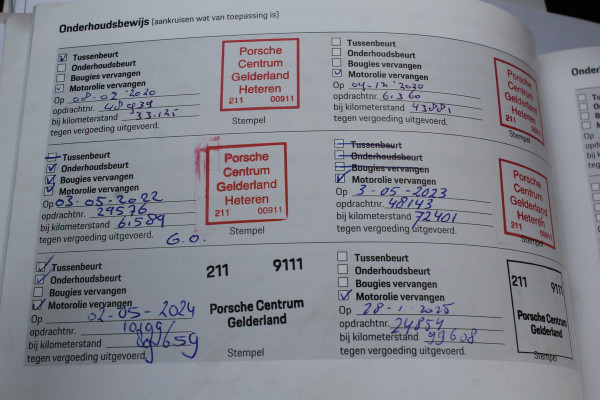 Onderhoudsbewijs (aankruisen wat van toepassing is)
Tussenbeurt
Onderhoudsbeurt
Bougies vervangen
Motorolie vervangen
Op 08-07-2020
opdrachtnr. 48939
bij kilometerstand 33.125
tegen vergoeding uitgevoerd.
Porsche
Centrum
Gelderland
Heteren
211 00911
Stempel
Tussenbeurt
Onderhoudsbeurt
Bougies vervangen
Motorolie vervangen
Op 04-12-2020
opdrachtnr. 6360
bij kilometerstand 43881
tegen vergoeding uitgevoerd.
Porsche
Centrum
Gelderland
Heteren
211 00911
Stempel
Tussenbeurt
Onderhoudsbeurt
Bougies vervangen
Motorolie vervangen
Op 03-05-2022
opdrachtnr. 29576
bij kilometerstand 61.589
tegen vergoeding uitgevoerd. G.O.
Porsche
Centrum
Gelderland
Heteren
211 00911
Stempel
Tussenbeurt
Onderhoudsbeurt
Bougies vervangen
Motorolie vervangen
Op 3-05-2023
opdrachtnr. 48143
bij kilometerstand 72401
tegen vergoeding uitgevoerd.
Porsche
Centrum
Gelderland
Heteren
211 00911
Stempel
Tussenbeurt
Onderhoudsbeurt
Bougies vervangen
Motorolie vervangen
Op 02-05-2024
opdrachtnr. 10999
bij kilometerstand 89659
tegen vergoeding uitgevoerd.
211 9111
Porsche Centrum
Gelderland
Stempel
Tussenbeurt
Onderhoudsbeurt
Bougies vervangen
Motorolie vervangen
Op 28-1-2025
opdrachtnr. 24854
bij kilometerstand 99608
tegen vergoeding uitgevoerd.
211 9111
Porsche Centrum
Gelderland
Stempel